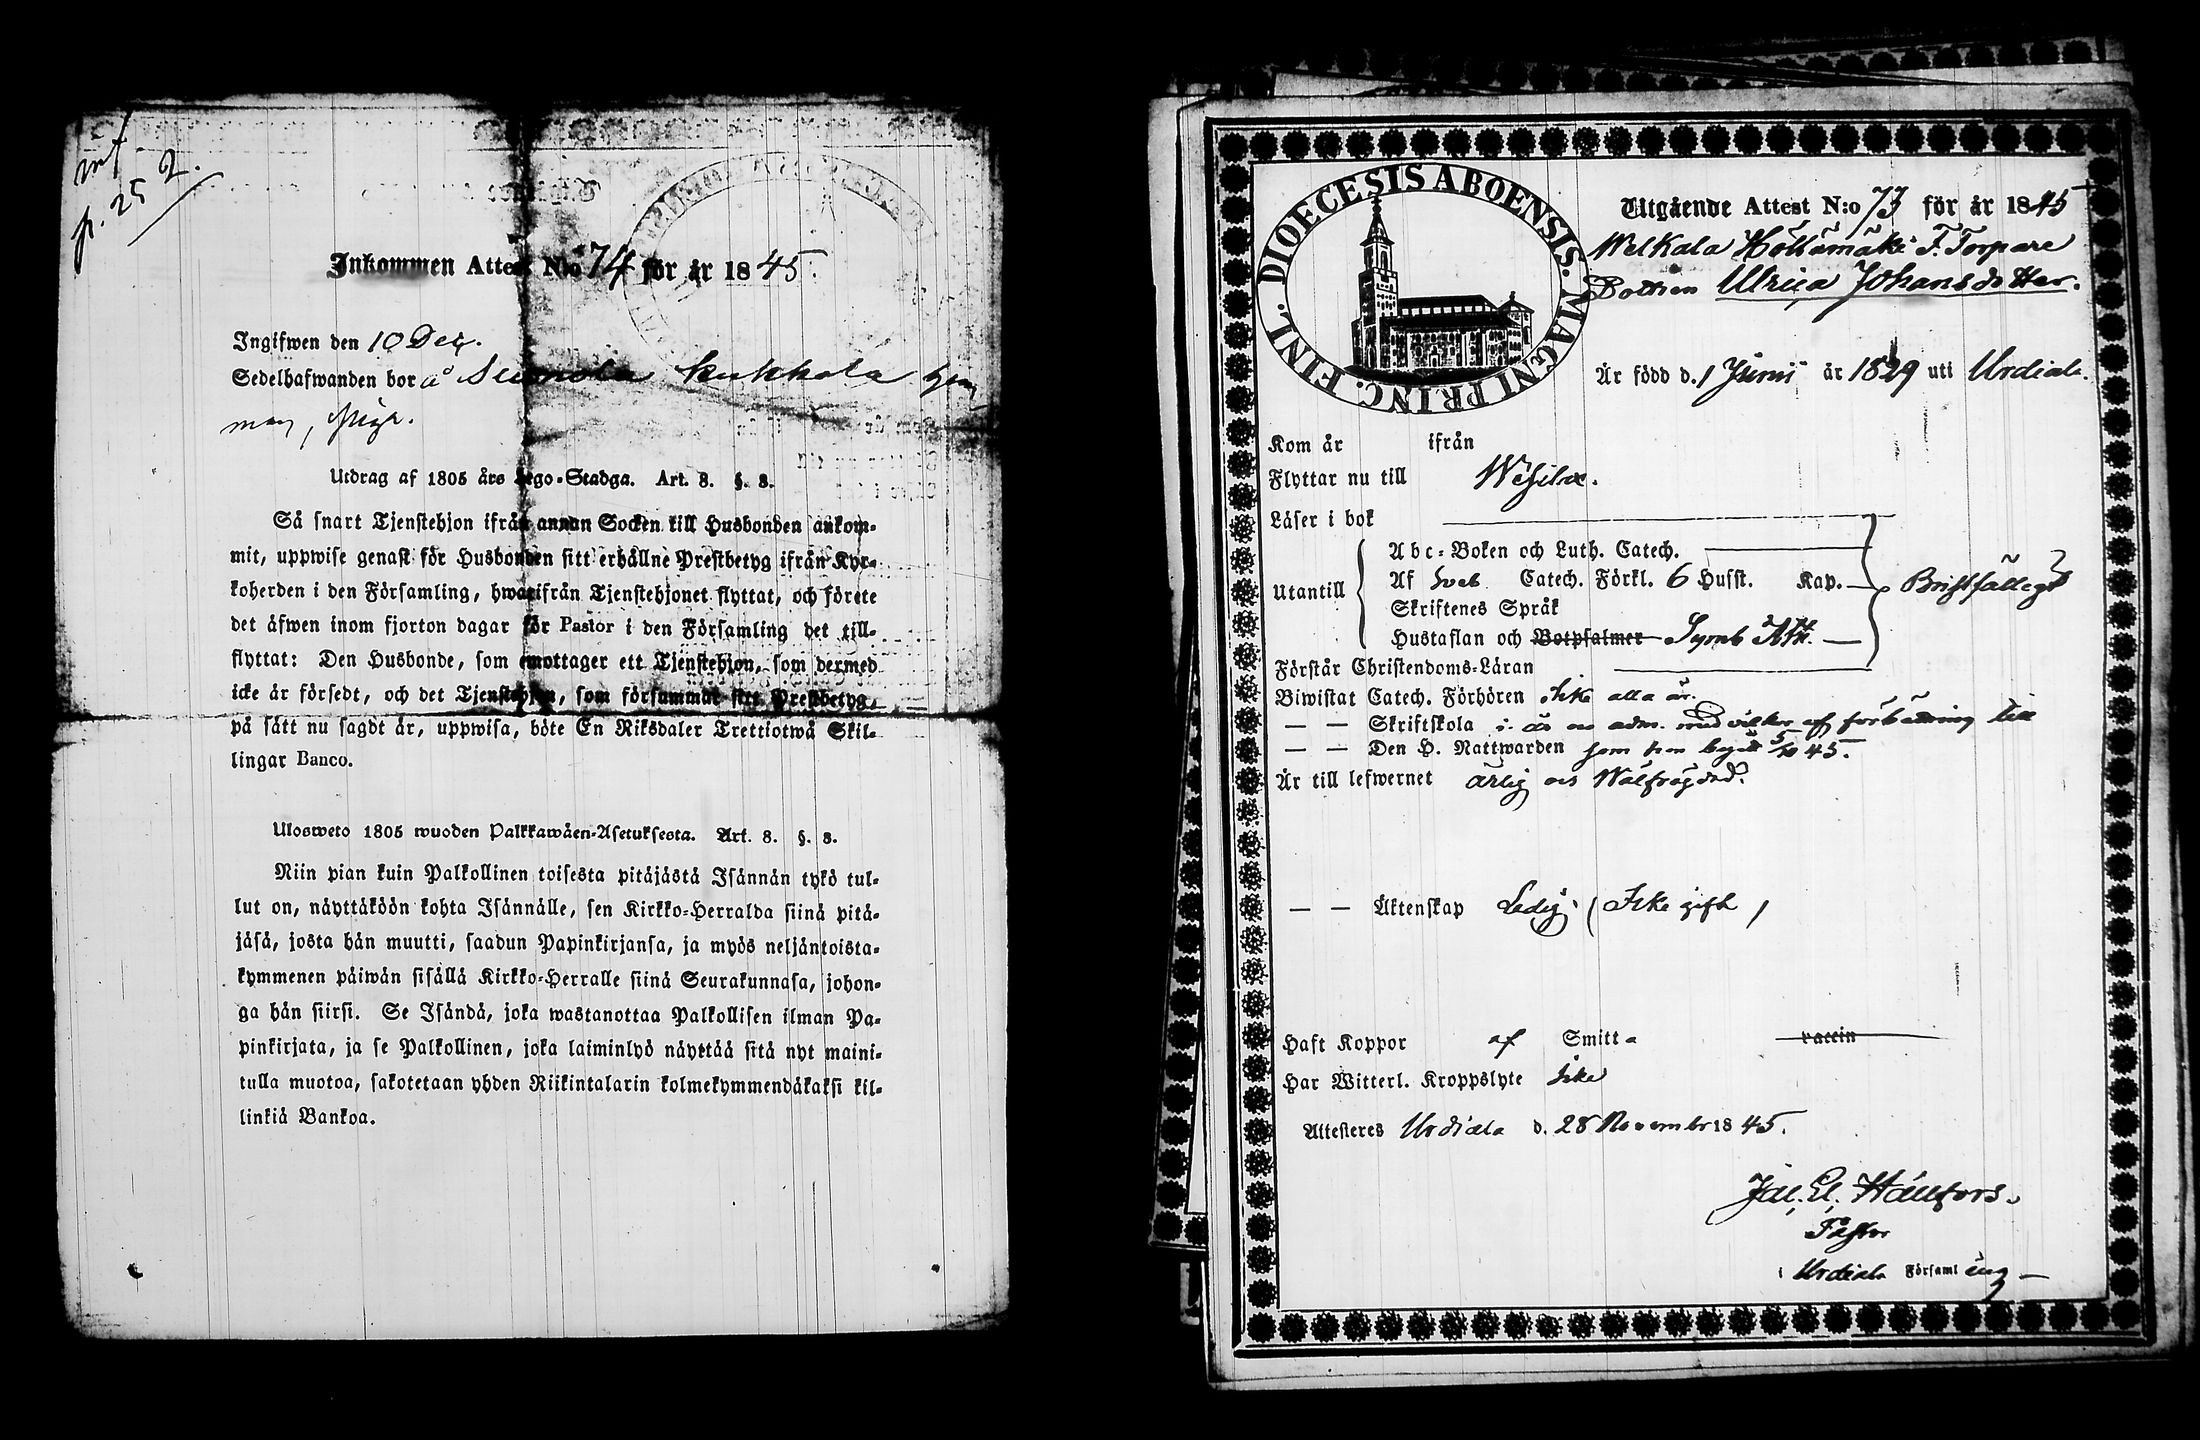 mf
p. 25 2.
Inkommen Attest N:o 74 för år 1845.
Ingifwen den 10 Dec.
Sedelhafwanden bor å Kukkola
man, piga.
Utdrag af 1805 års Lego-Stadga. Art. 8. §. 3.
Så snart Tjenstehjon ifrån annan Socken till Husbonden ankom-
mit, uppwise genast för Husbonden sitt erhållne Prestbetyg ifrån Kyr-
koherden i den Församling, hwarifrån Tjenstehjonet flyttat, och förete
det äfwen inom fjorton dagar för Pastor i den Församling det till-
flyttat: Den Husbonde, som emottager ett Tjenstehjon, som dermed
icke är försedt, och det Tjenstehjon, som försummar sitt Prestbetyg,
på sätt nu sagdt är, uppwisa, böte En Riksdaler Trettiotwå Skil-
lingar Banco.
Ulosweto 1805 wuoden Palkkawäen-Asetuksesta. Art. 8. §. 3.
Niin pian kuin Palkollinen toisesta pitäjästä Isännän tykö tul-
lut on, näyttäköön kohta Isännälle, sen Kirkko-Herralda siinä pitä-
jäsä, josta hän muutti, saadun Papinkirjansa, ja myös neljäntoista-
kymmenen päiwän sisällä Kirkko-Herralle siinä Seurakunnasa, johon-
ga hän siirsi. Se Isändä, joka wastanottaa Palkollisen ilman Pa-
pinkirjata, ja se Palkollinen, joka laiminlyö näyttää sitä nyt maini-
tulla muotoa, sakotetaan yhden Riikintalarin kolmekymmendäkaksi kil-
linkiä Bankoa.
DIOECESIS ABOENSIS. MAGNI PRINC. FINL.
Utgående Attest N:o 73 för år 1845
Welkala Höllämäki F. Torpare
Dottren Ulrica Johansdotter.
Är född d. 1 Junii år 1829 uti Urdiala.
Kom år ifrån
Flyttar nu till Wesilax.
Läser i bok
Abc-Boken och Luth. Catech.
Utantill Af Sveb Catech. Förkl. 6 Husst. Kap. Bristfälligt
Skriftenes Språk
Hustaflan och Botpsalmer Symb Ath.
Förstår Christendoms-Läran
Biwistat Catech. Förhören Icke alla år.
— — Skriftskola i år oc adm. med vilkor af förbättring till
— — Den H. Nattwarden som hon begått 5/10 45.
Är till lefwernet ärlig och Wälfrägdad.
— — Äktenskap Ledig (Icke gift)
Haft Koppor af Smitta vaccin
Har Witterl. Kroppslyte Icke
Attesteres Urdiala d. 28 November 1845.
Jac. El. Hällfors.
Pastor
i Urdiala Församling